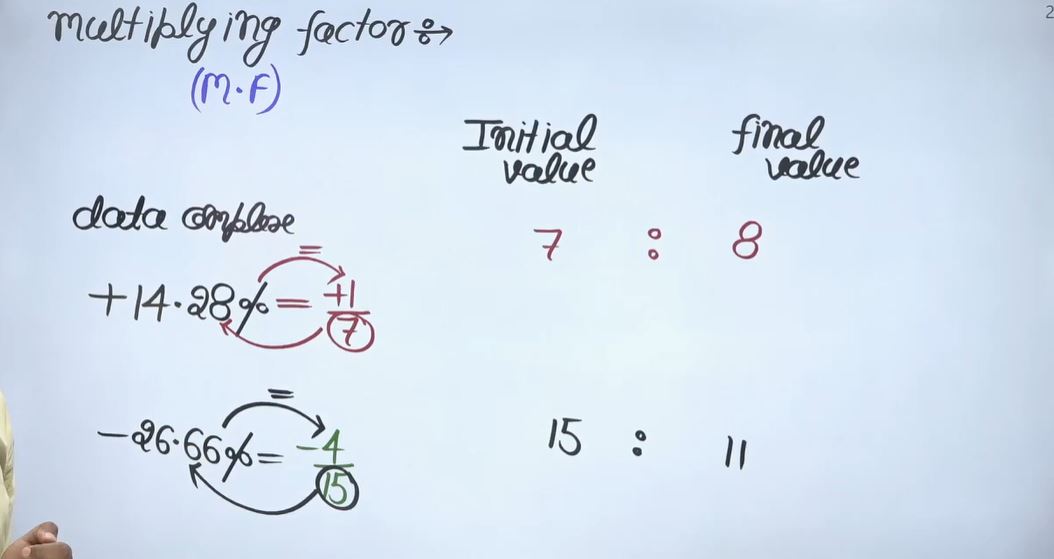 multiplying factor
2
(M.F)
Initial value
final value
data
7 : 8
+14.28% = +1/7
-26.66% = -4/15
15 : 11